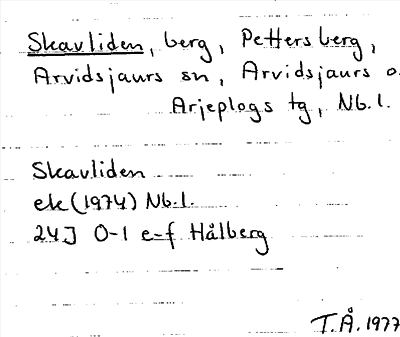 Skavliden, berg, Pettersberg,
Arvidsjaurs sn, Arvidsjaurs o.
Arjeplogs tg, Nb.l.
Skavliden
ek (1974) Nb.l.
24J 0-1 e-f Hålberg
T.Å. 1977